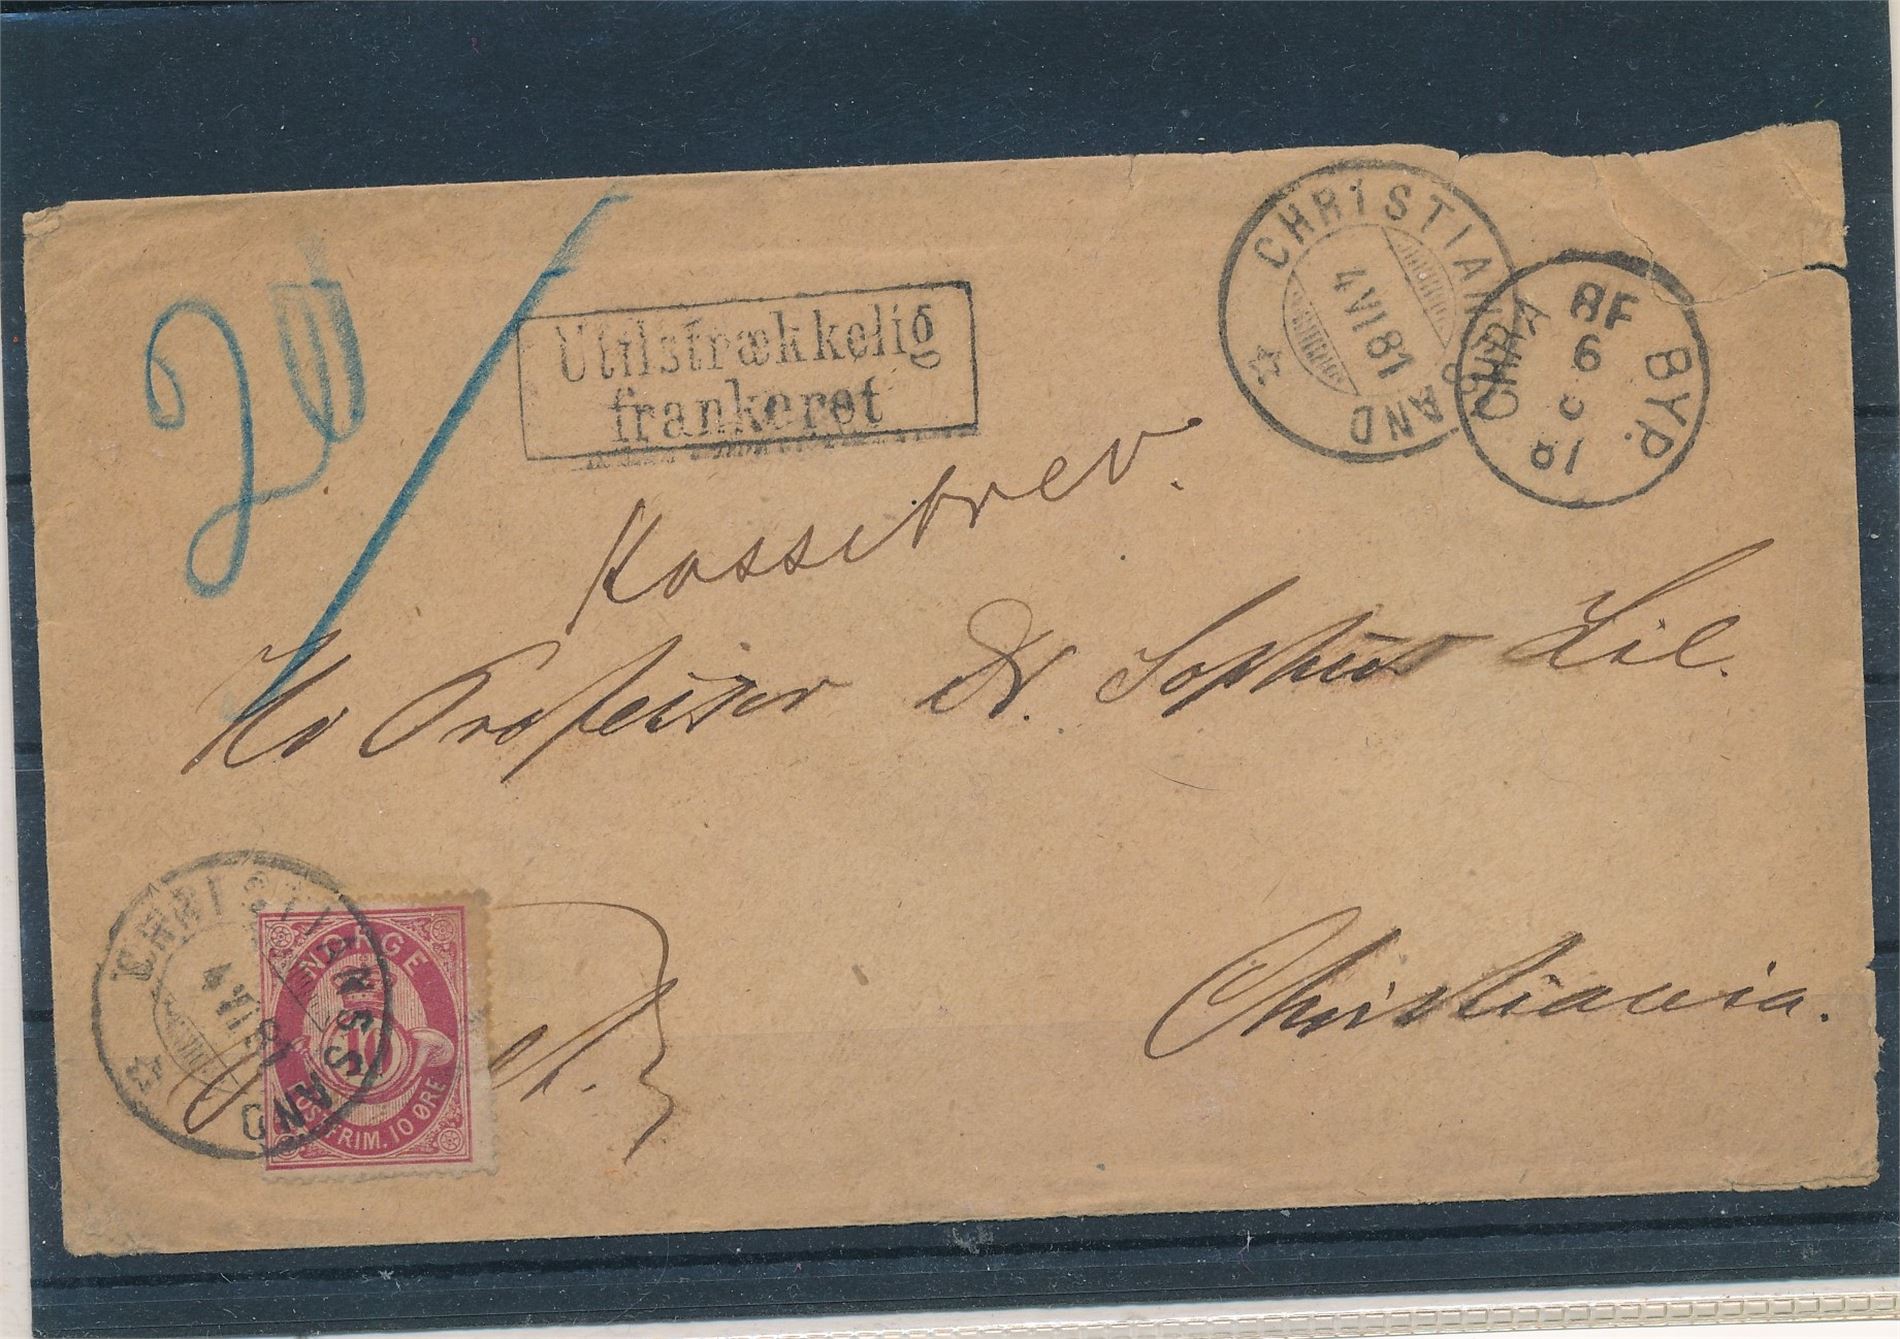 20
Utilstrækkelig
frankeret
CHRISTIANSSAND
4 VI 81
CHRA BYP.
8F
6
6
81
Kassebrev.
Hr Professor Dr. Sophus Lie.
Christiania.
CHRISTIANSSAND
4 VI 81
NORGE
10
POSTFRIM. 10 ØRE